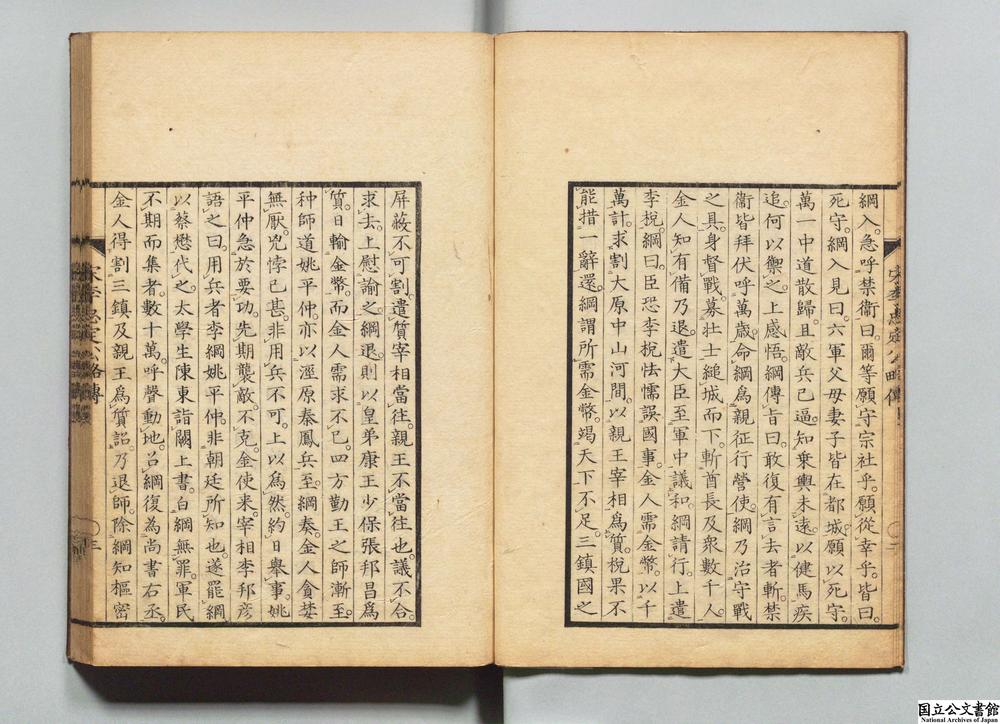 綱入。急呼禁衞曰。爾等願守宗社乎。願從幸乎。皆曰。
死守。綱入見曰。六軍父母妻子皆在都城。願以死守。
萬一中道散歸。且敵兵已逼。知乗輿未遠。以健馬疾
追。何以禦之。上感悟。綱傳旨曰。敢復有言去者斬。禁
衞皆拜伏呼萬歳。命綱爲親征行營使。綱乃治守戰
之具。身督戰。募壮士縋城而下。斬酋長及衆數千人。
金人知有備乃退。遣大臣至軍中議和。綱請行。上遣
李梲。綱曰。臣恐李梲怯懦誤國事。金人需金幣。以千
萬計。求割大原中山河間。以親王宰相爲質。梲果不
能措一辭還。綱謂所需金幣。竭天下不足。三鎮國之
屏蔽不可割。遣質宰相當往。親王不當往也。議不合。
求去。上慰諭之。綱退。則以皇弟康王少保張邦昌爲
質。日輸金幣。而金人需求不已。四方勤王之師漸至。
种師道姚平仲。亦以涇原秦鳳兵至。綱奏。金人貪婪
無厭。兇悖已甚。非用兵不可。上以爲然。約日舉事。姚
平仲急於要功。先期襲敵。不克。金使来。宰相李邦彦
語之曰。用兵者李綱姚平仲。非朝廷所知也。遂罷綱
以蔡懋代之。太學生陳東詣闕上書。白綱無罪。軍民
不期而集者。數十萬。呼聲動地。召綱復為尚書右丞。
金人得割三鎮及親王爲質詔。乃退師。除綱知樞密
宋李忠定公略傳
三
国立公文書館
National Archives of Japan